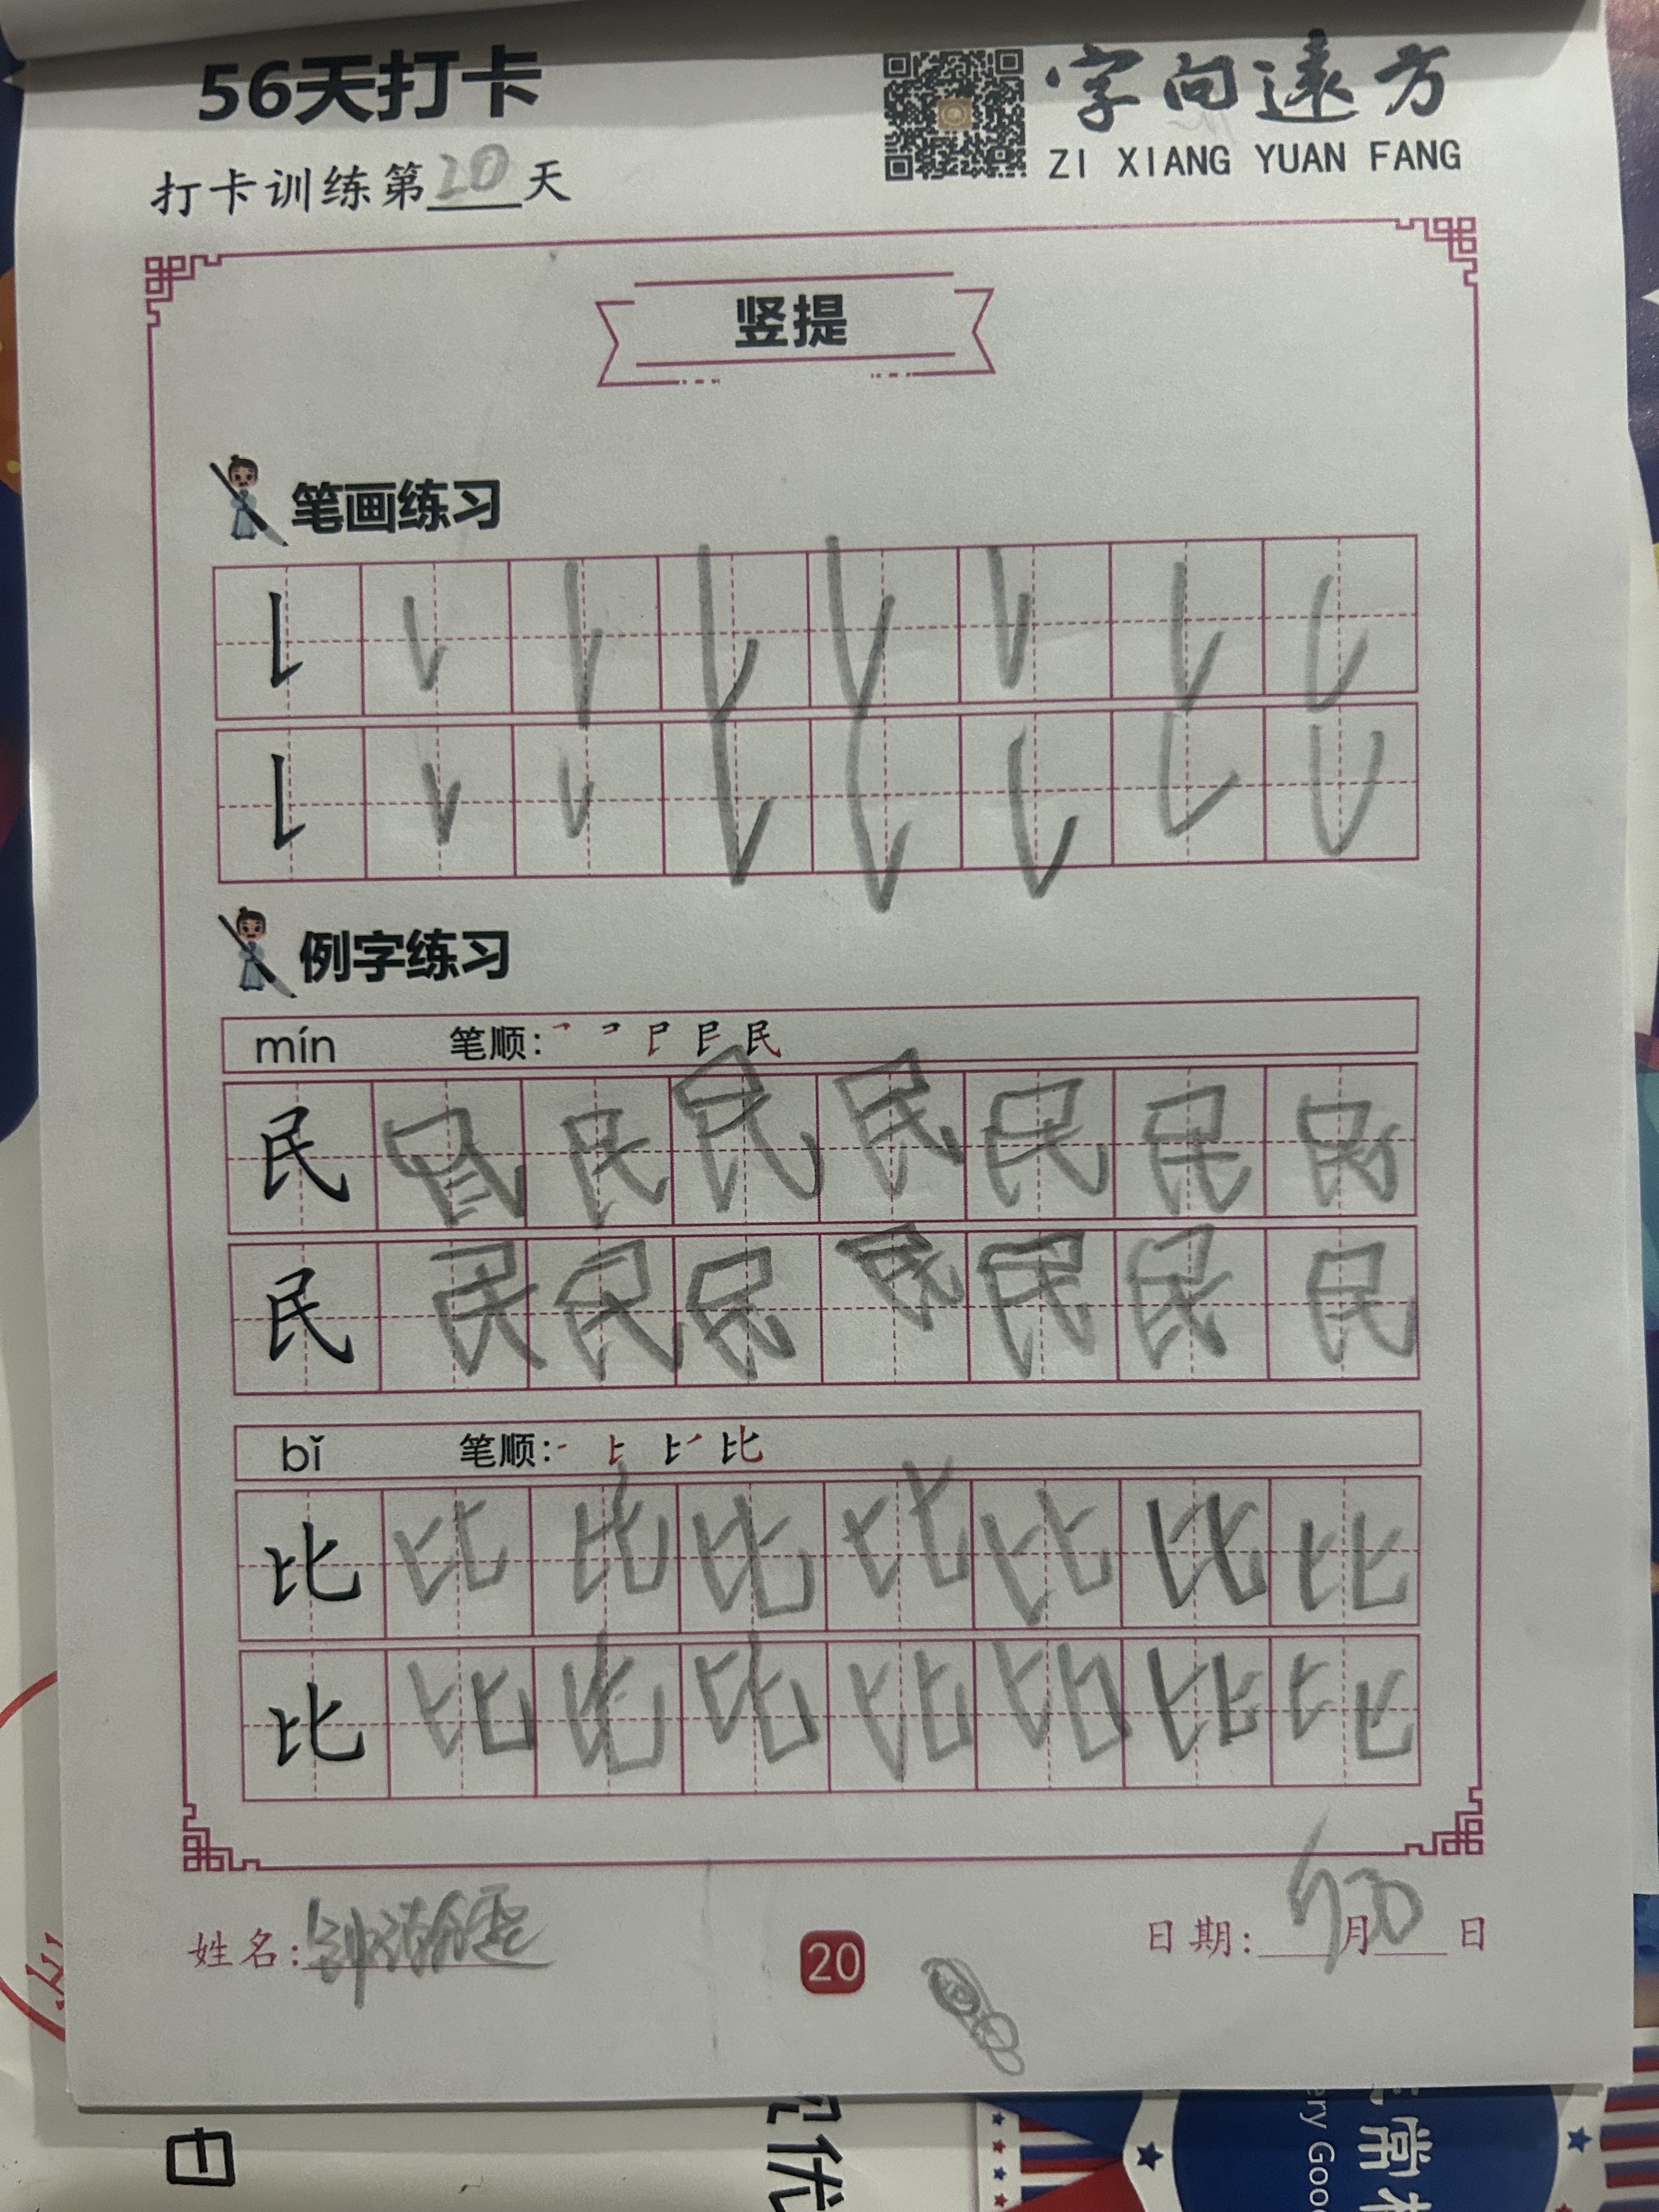 56天打卡
字向遠方
ZI XIANG YUAN FANG
打卡训练第20天
竖提
笔画练习
例字练习
mín 笔顺:
民 民 民 民 民 民 民 民
民 民 民 民 民 民 民 民
bǐ 笔顺:
比 比 比 比 比 比 比 比
比 比 比 比 比 比 比 比
姓名:
20
日期: 月30日
日
优
常
ery Good